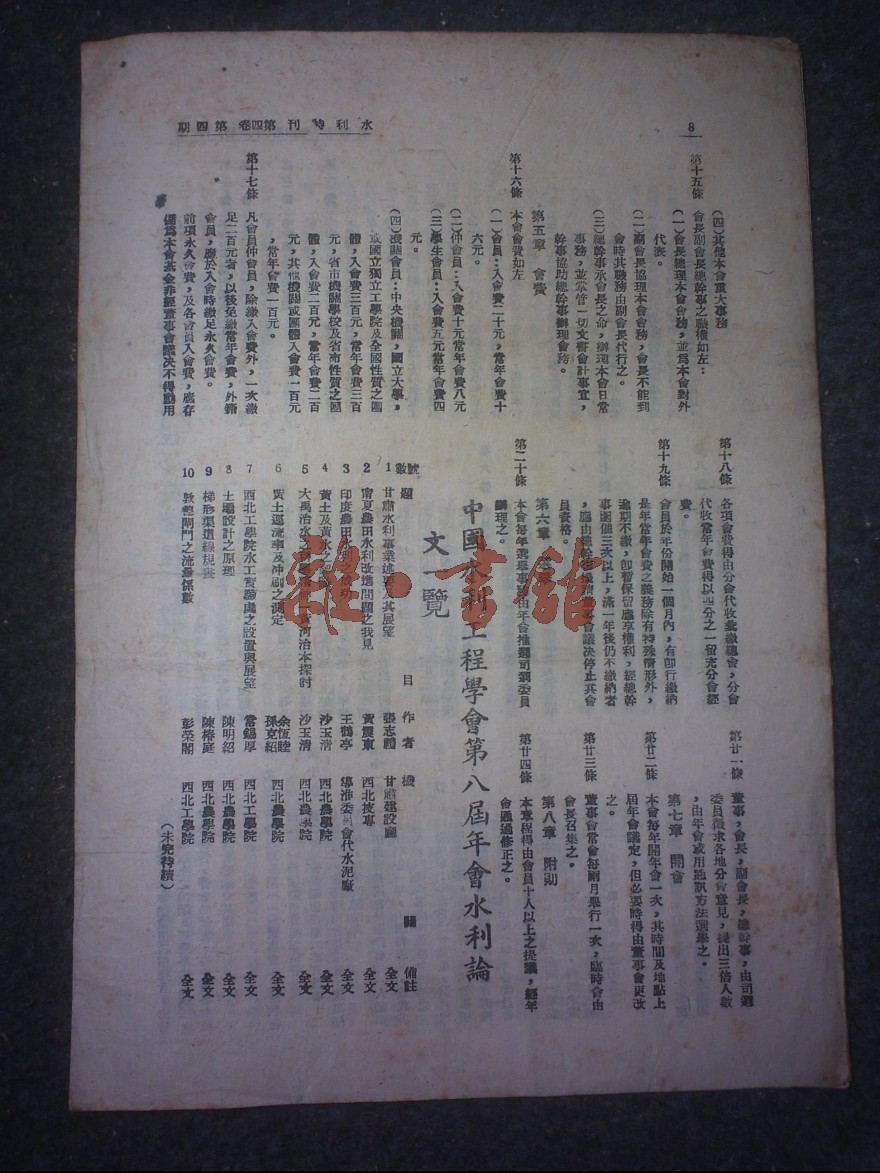 8
水利特刊第四卷第四期
(四)其他本會重大事務
第十五條
會長副會長總幹事之職權如左:
(一)會長總理本會會務,並爲本會對外
代表。
(二)副會長協理本會會務,會長不能到
會時其職務由副會長代行之。
(三)總幹事承會長之命,辦理本會日常
事務,並掌管一切文書會計事宜,
幹事協助總幹事辦理會務。
第五章 會費
第十六條
本會會費如左
(一)會員:入會費二十元,常年會費十
六元。
(二)仲會員:入會費十元常年會費八元
(三)學生會員:入會費五元常年會費四
元。
(四)機關會員:中央機關,國立大學,
或國立獨立工學院及全國性質之團
體,入會費三百元,常年會費三百
元,省市機關學校及省市性質之團
體,入會費二百元,常年會費二百
元,其他機關或團體入會費一百元
,常年會費一百元。
第十七條
凡會員仲會員,除繳入會費外,一次繳
足二百元者,以後免繳常年會費,外籍
會員,應於入會時繳足永久會費。
前項永久會費,及各會員入會費,應存
儲爲本會基金非經董事會議决不得動用
第十八條
各項會費得由分會代收彙繳總會,分會
代收常年會費得以四分之一留充分會經
費。
第十九條
會員於年份開始一個月內,有卽行繳納
是年常年會費之義務除有特殊情形外,
逾期不繳,卽暫保留應享權利,經總幹
事函催三次以上,滿一年後仍不繳納者
,應由總幹事 董事會議决停止其會
員資格。
第六章
第二十條
本會每年選舉事務由年會推選司選委員
辦理之。
第廿一條
董事,會長,副會長,總幹事,由司選
委員徵求各地分會意見,提出三倍人數
,由年會或用通訊方法選舉之。
第七章 開會
第廿二條
本會每年開年會一次,其時間及地點上
屆年會議定,但必要時得由董事會更改
之。
第廿三條
董事會常會每兩月舉行一次,臨時會由
會長召集之。
第八章 附則
第廿四條
本章程得由會員十人以上之提議,經年
會通過修正之。
中國水利工程學會第八屆年會水利論
文一覽
號數 題 目 作者 機 關 備註
1 甘肅水利事業述要及其展望 張志禮 甘肅建設廳 全文
2 甯夏農田水利改進問題之我見 黃震東 西北技專 全文
3 印度農田水利之成功 王鶴亭 導淮委員會代水泥廠 全文
4 黃土及黃水之 沙玉清 西北農學院 全文
5 大禹治水之 黃河治本探討 沙玉清 西北農學院 全文
6 黃土運流率及冲刷之測定 余恆睦 孫克紹 西北農學院 全文
7 西北工學院水工實驗處之設置與展望 常錫厚 西北工學院 全文
8 土壩設計之原理 陳明紹 西北農學院 全文
9 梯形渠道線規 陳椿庭 西北農學院 全文
10 敦 閘門之流量係數 彭榮閣 西北工學院 全文
(未完待續)
雜·書館